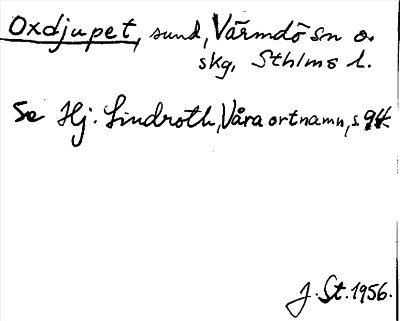 Oxdjupet, sund, Värmdö sn o.
skg, Sthlms l.
Se Hj. Lindroth, Våra ortnamn, s 94.
J. St. 1956.